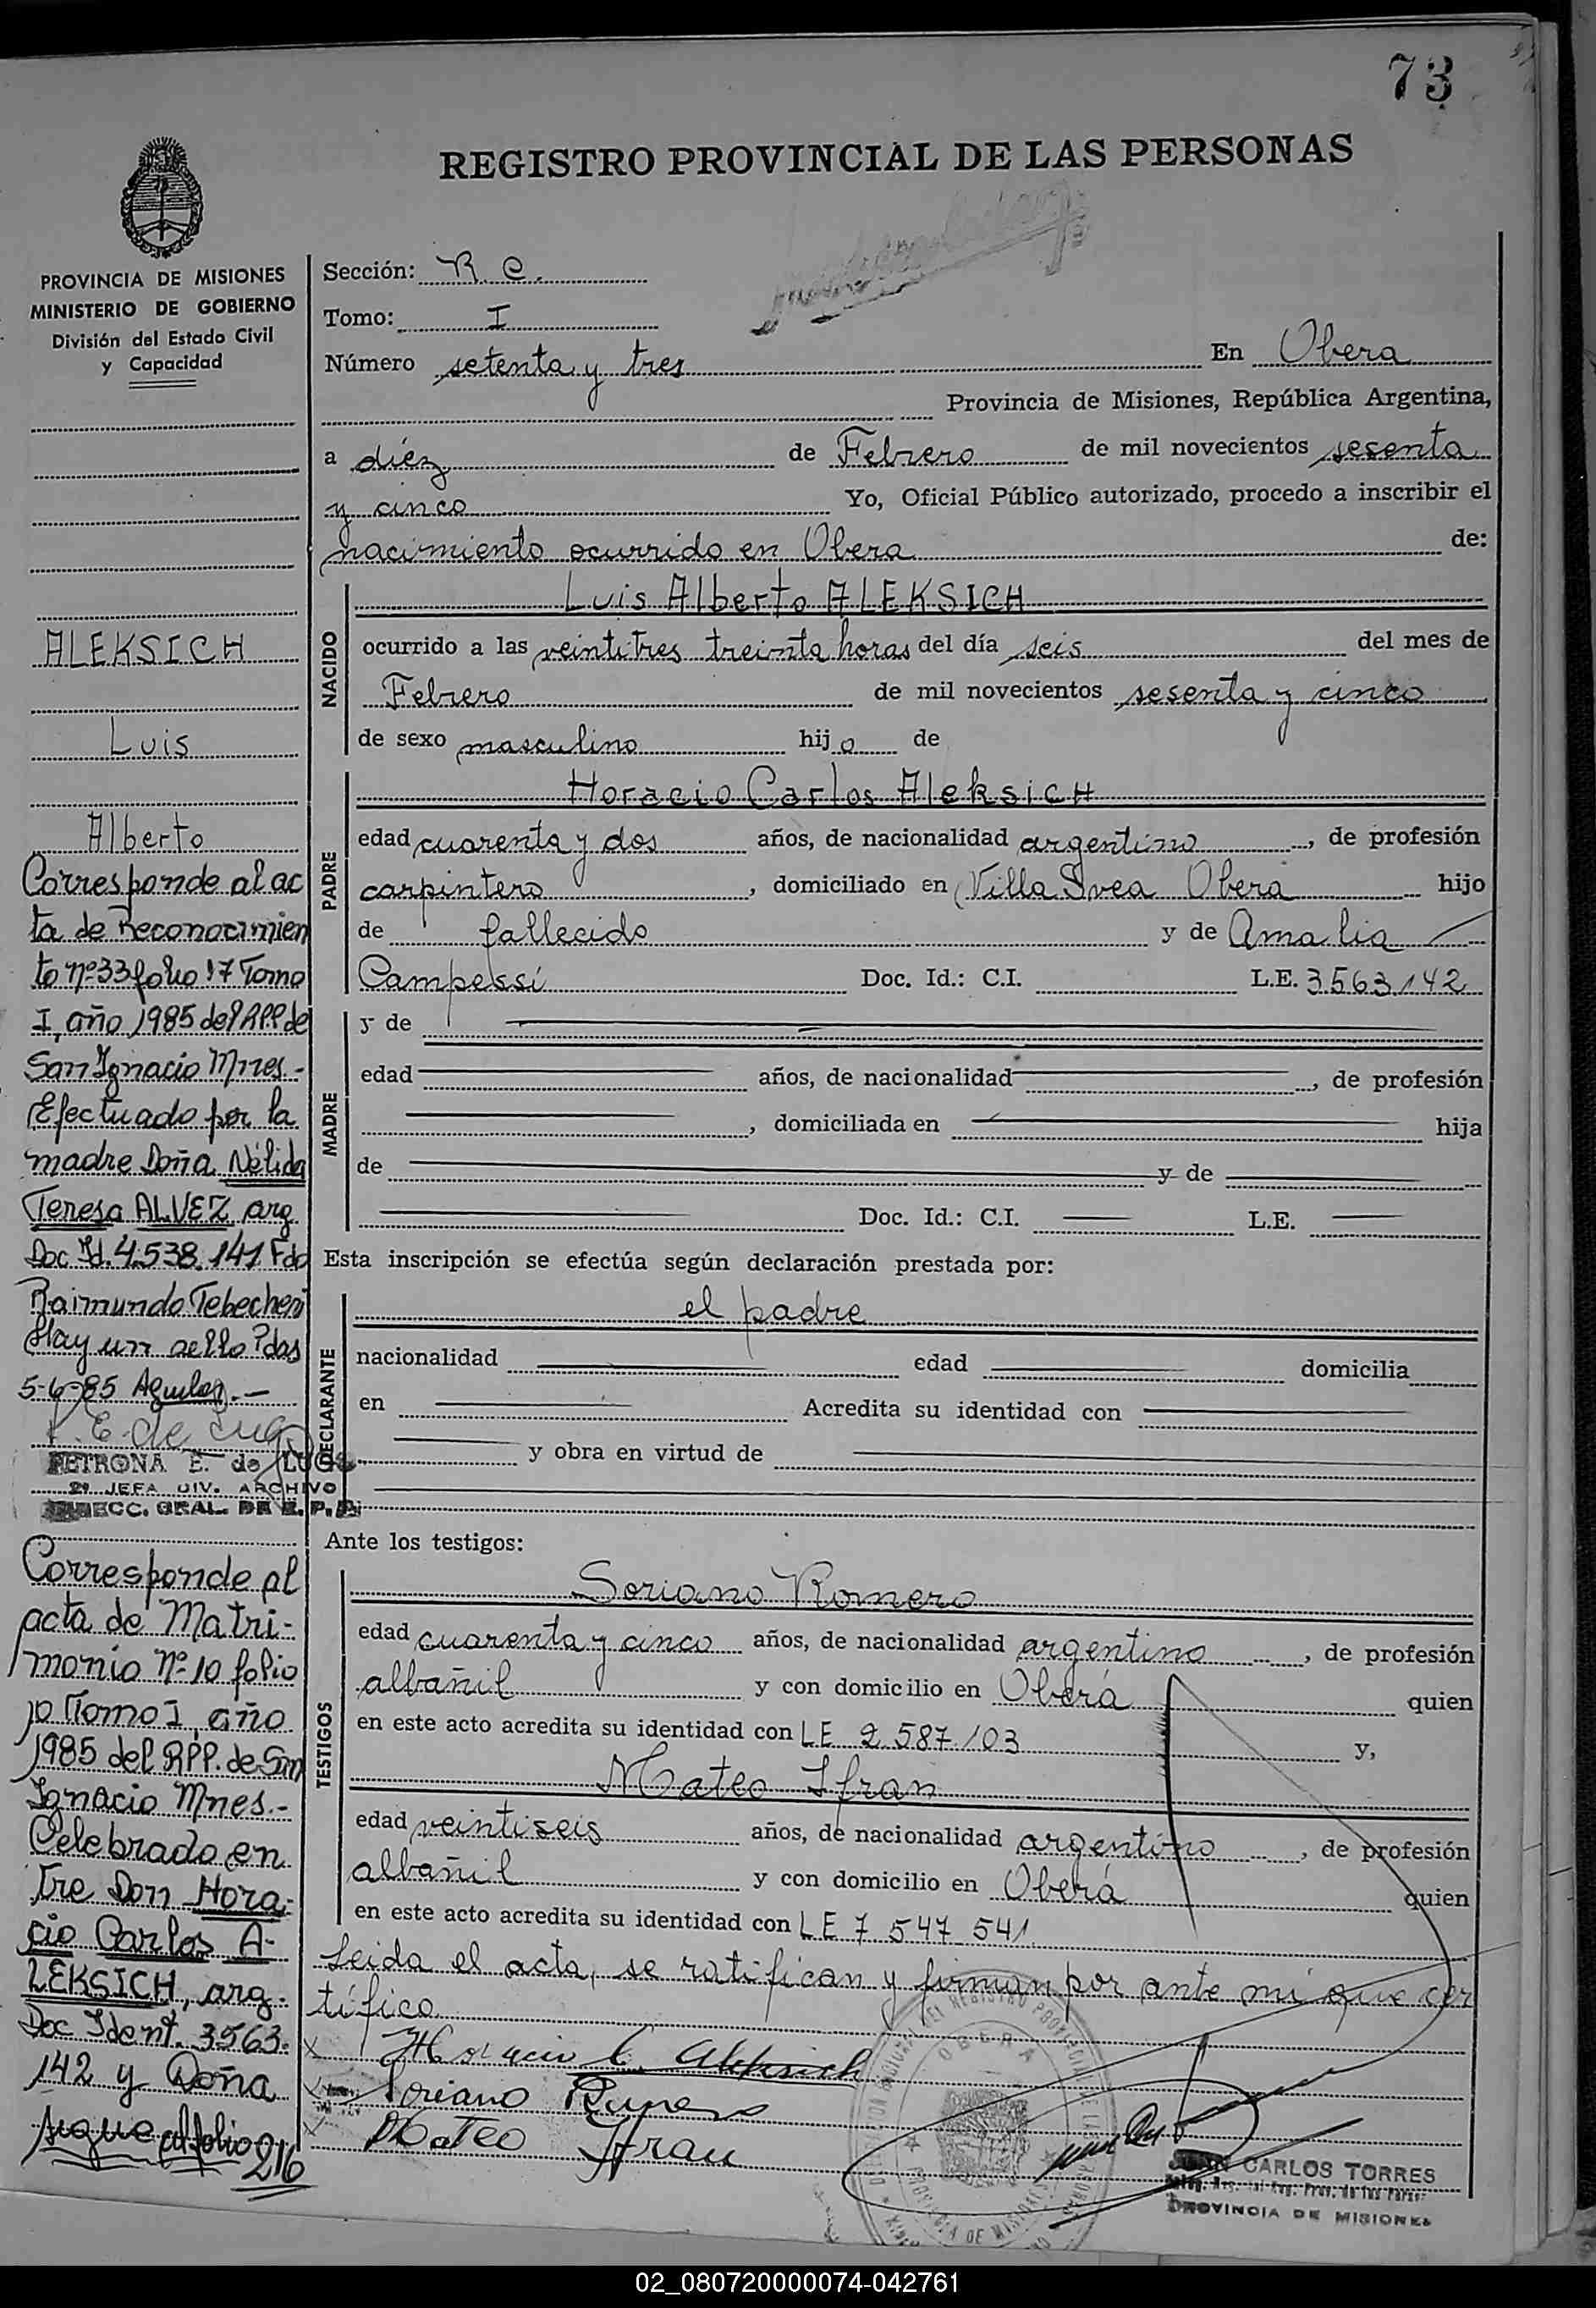 73
REGISTRO PROVINCIAL DE LAS PERSONAS
PROVINCIA DE MISIONES
MINISTERIO DE GOBIERNO
División del Estado Civil
y Capacidad
ALEKSICH
Luis
Alberto
Corresponde al ac
ta de Reconocimien
to Nº 33 folio 17 Tomo
I, año 1985 del RPP de
San Ignacio Mnes.-
Efectuado por la
madre Doña Nélida
Teresa ALVEZ, arg.
Doc Id. 4.538.141 Fdo
Raimundo
Hay un sello Pdas
5-6-85
PETRONA E. de LUGO
JEFA DIV. ARCHIVO
DIRECC. GRAL. DE R. P. P.
Corresponde al
acta de Matri-
monio Nº 10 folio
10 Tomo I, año
1985 del RPP. de San
Ignacio Mnes.-
Celebrado en
tre Don Hora-
cio Carlos A-
LEKSICH, arg.
Doc Ident. 3.563.
142 y Doña
sigue al folio 216
Sección: R C.
Tomo: I
Número setenta y tres En Obera
Provincia de Misiones, República Argentina,
a diéz de Febrero de mil novecientos sesenta
y cinco Yo, Oficial Público autorizado, procedo a inscribir el
nacimiento ocurrido en Obera de:
NACIDO
Luis Alberto ALEKSICH
ocurrido a las veintitres treinta horas del día seis del mes de
Febrero de mil novecientos sesenta y cinco
de sexo masculino hijo de
PADRE
Horacio Carlos AleksicH
edad cuarenta y dos años, de nacionalidad argentino, de profesión
carpintero, domiciliado en Villa Svea Obera hijo
de fallecido y de Amalia
Campessi Doc. Id.: C.I. L.E. 3.563.142
MADRE
y de
edad años, de nacionalidad, de profesión
, domiciliada en hija
de y de
Doc. Id.: C.I. L.E.
Esta inscripción se efectúa según declaración prestada por:
DECLARANTE
el padre
nacionalidad edad domicilia
en Acredita su identidad con
y obra en virtud de
Ante los testigos:
TESTIGOS
Soriano Romero
edad cuarenta y cinco años, de nacionalidad argentino, de profesión
albañil y con domicilio en Oberá quien
en este acto acredita su identidad con LE 2.587.103 y,
Mateo Ifran
edad veintiseis años, de nacionalidad argentino, de profesión
albañil y con domicilio en Oberá quien
en este acto acredita su identidad con LE 7 547 541
Leida el acta, se ratifican y firman por ante mi que cer
tifico
Horacio C. Aleksich
Soriano Romero
Mateo Ifran
OBERA
JUAN CARLOS TORRES
PROVINCIA DE MISIONES
02_080720000074-042761